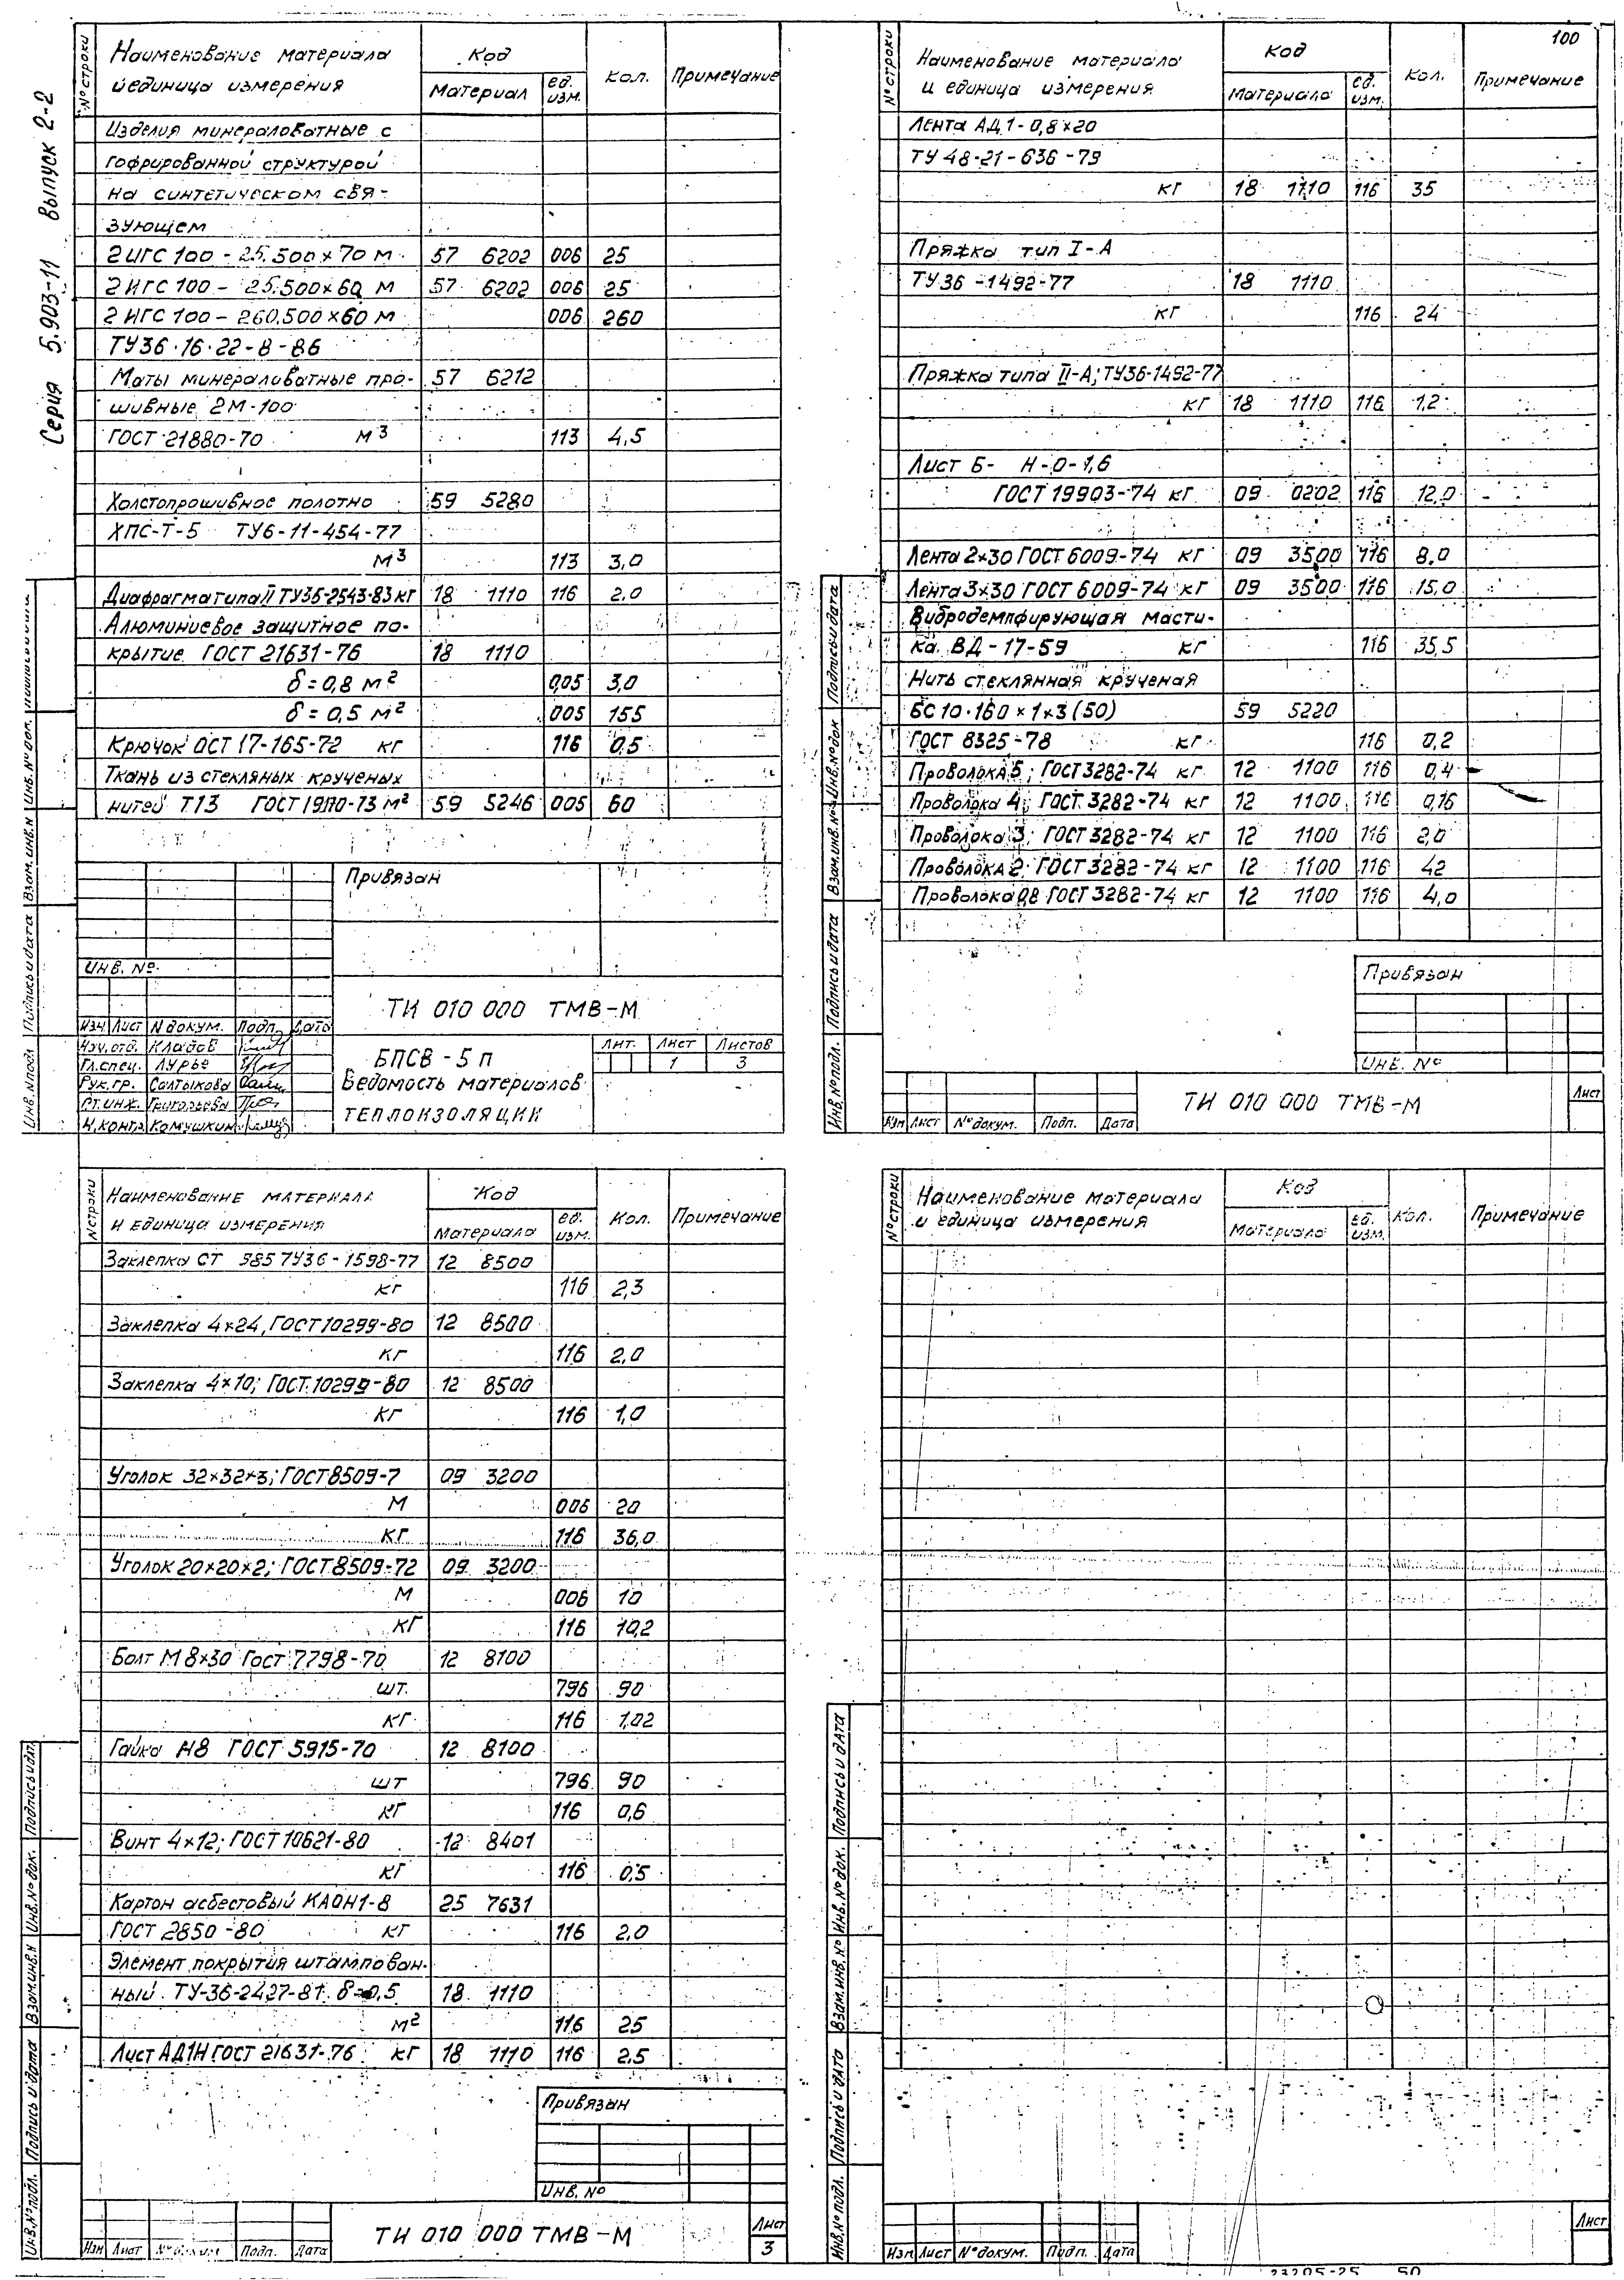 Серия 5.903-11 выпуск 2-2
№ строки
Наименование материала и единица измерения
Код
Материал
ед. изм.
Кол.
Примечание
Изделия минераловатные с
гофрированной структурой
на синтетическом свя-
зующем
2ИГС 100 - 25.500×70 м 57 6202 006 25
2ИГС 100 - 25.500×60 м 57 6202 006 25
2ИГС 100 - 260.500×60 м 006 260
ТУ36·16·22-8-86
Маты минераловатные про- 57 6212
шивные 2М-100
ГОСТ 21880-70 м3 113 4,5
Холстопрошивное полотно 59 5280
ХПС-Т-5 ТУ6-11-454-77
м3 113 3,0
Диафрагма типа II ТУ36-2543-83 кг 18 1110 116 2.0
Алюминиевое защитное по-
крытие ГОСТ 21631-76 18 1110
δ=0,8 м2 005 3,0
δ=0,5 м2 005 155
Крючок ОСТ 17-165-72 кг 116 0,5
Ткань из стекляных крученых
нитей Т13 ГОСТ 19170-73 м2 59 5246 005 60
Привязан
Инв. №
ТИ 010 000 ТМВ-М
Изм Лист N докум. Подп. Дата
Нач.отд. Кладов
Гл.спец. Лурье
Рук.гр. Салтыкова
Ст.инж. Григорьева
Н.контр Комушкин
БПСВ-5п
Ведомость материалов
теплоизоляции
Лит. Лист Листов
1 3
Инв.N подл Подпись и дата Взам.инв.N Инв.N док.
100
№ строки
Наименование материала и единица измерения
Код
Материала
ед. изм.
Кол.
Примечание
Лента АД1-0,8×20
ТУ 48-21-636-79
кг 18 1110 116 35
Пряжка тип I-А
ТУ36-1492-77 18 1110
кг 116 24
Пряжка типа II-А; ТУ36-1492-77
кг 18 1110 116 1,2
Лист Б- Н-0-1,6
ГОСТ 19903-74 кг 09 0202 116 12,0
Лента 2×30 ГОСТ 6009-74 кг 09 3500 116 8,0
Лента 3×30 ГОСТ 6009-74 кг 09 3500 116 15,0
Вибродемпфирующая масти-
ка ВД-17-59 кг 116 35,5
Нить стеклянная крученая
БС10·160×1×3(50) 59 5220
ГОСТ 8325-78 кг 116 0,2
Проволока 5; ГОСТ 3282-74 кг 12 1100 116 0,4
Проволока 4; ГОСТ 3282-74 кг 12 1100 116 0,16
Проволока 3; ГОСТ 3282-74 кг 12 1100 116 2,0
Проволока 2; ГОСТ 3282-74 кг 12 1100 116 42
Проволока 0,8 ГОСТ 3282-74 кг 12 1100 116 4,0
Привязан
Инв. №
ТИ 010 000 ТМВ-М
Лист
Изм Лист №докум. Подп. Дата
Инв.№подл. Подпись и дата Взам.инв.№ Инв.№док Подпись и дата
N строки
Наименование материала и единица измерения
Код
Материала
ед. изм.
Кол.
Примечание
Заклепка СТ 985 ТУ36-1598-77 12 8500
кг 116 2,3
Заклепка 4×24, ГОСТ 10299-80 12 8500
кг 116 2,0
Заклепка 4×10; ГОСТ 10299-80 12 8500
кг 116 1,0
Уголок 32×32×3; ГОСТ 8509-7 09 3200
м 006 20
кг 116 36,0
Уголок 20×20×2; ГОСТ 8509-72 09 3200
м 006 10
кг 116 10,2
Болт М8×30 ГОСТ 7798-70 12 8100
шт. 796 90
кг 116 1,02
Гайка М8 ГОСТ 5915-70 12 8100
шт 796 90
кг 116 0,6
Винт 4×12; ГОСТ 10621-80 12 8401
кг 116 0,5
Картон асбестовый КАОН1-8 25 7631
ГОСТ 2850-80 кг 116 2,0
Элемент покрытия штампован-
ный ТУ-36-2427-81 δ=0,5 18 1110
м2 116 25
Лист АД1Н ГОСТ 21631-76 кг 18 1110 116 2,5
Привязан
Инв. №
ТИ 010 000 ТМВ-М
Лист
3
Изм Лист Подп. Дата
Инв.№подл. Подпись и дата Взам.инв.N Инв.№док. Подпись и дат
№ строки
Наименование материала и единица измерения
Код
Материала
ед. изм.
Кол.
Примечание
Инв.№подл. Подпись и дата Взам.инв.№ Инв.№док. Подпись и дата
Изм Лист №докум. Подп. Дата
Лист
23205-25 50